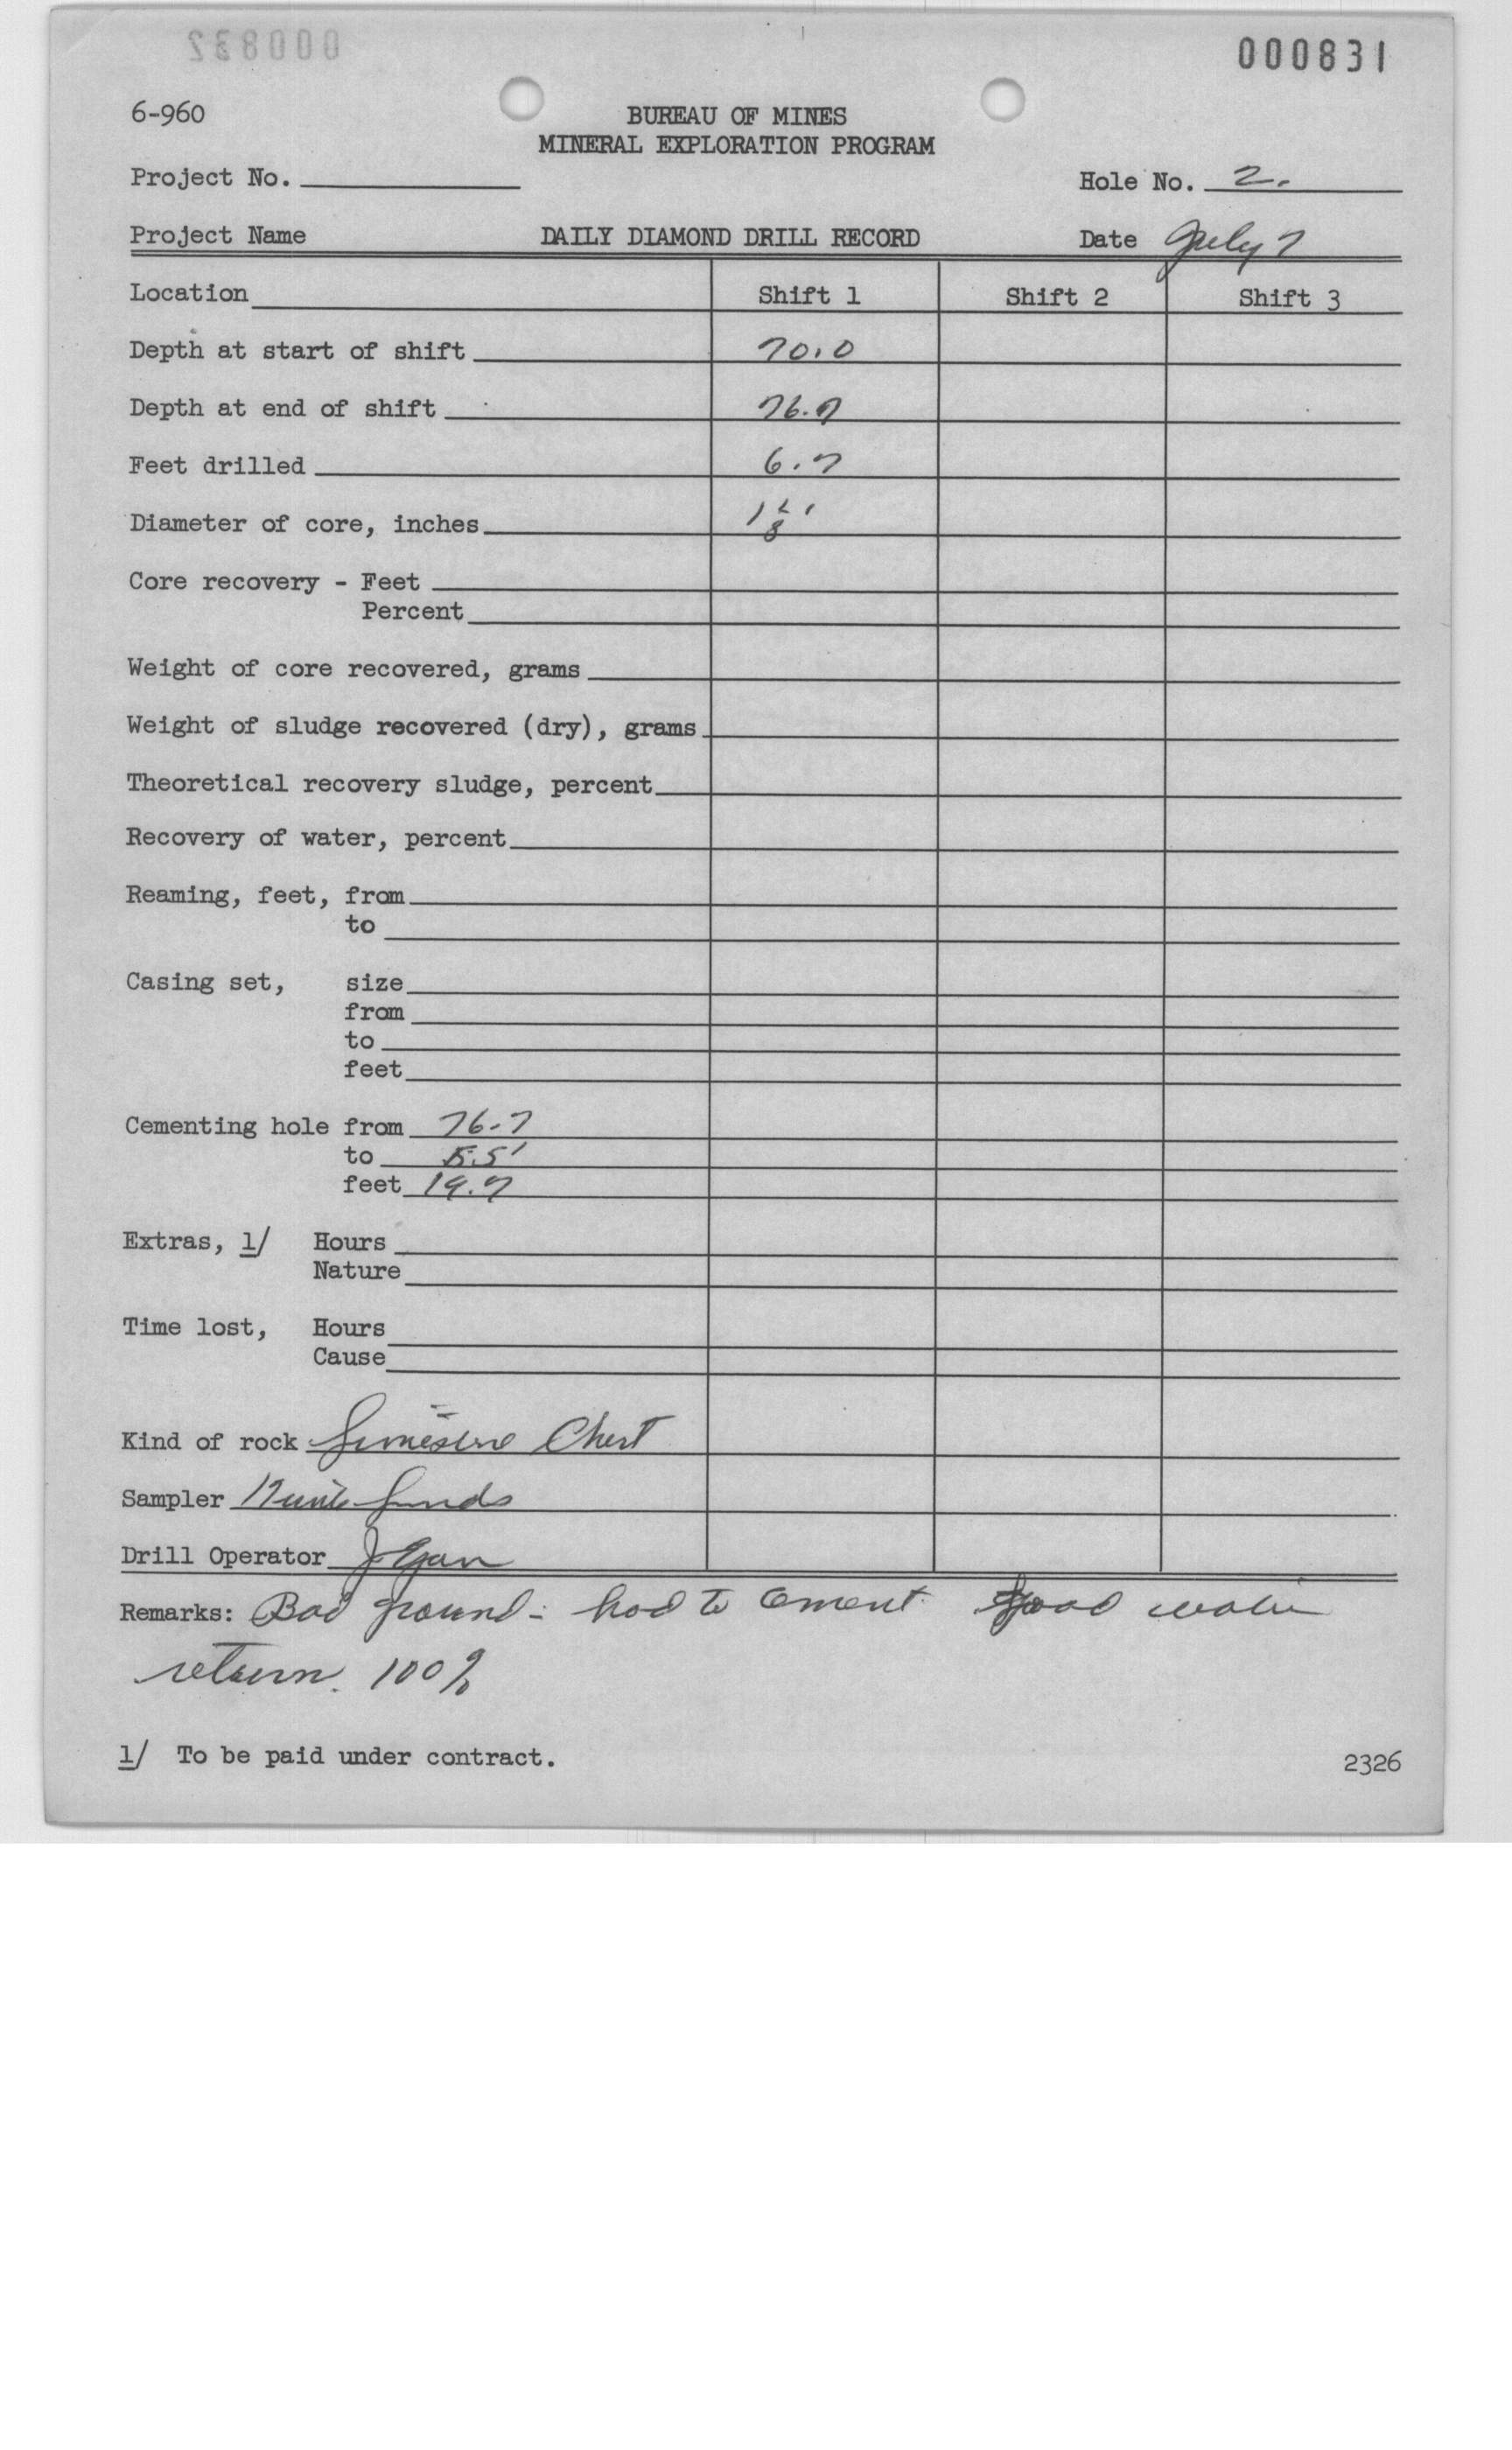 000832
000831
6-960
BUREAU OF MINES
MINERAL EXPLORATION PROGRAM
Project No.
Hole No. 2.
Project Name DAILY DIAMOND DRILL RECORD Date July 7
Location Shift 1 Shift 2 Shift 3
Depth at start of shift 70.0
Depth at end of shift 76.7
Feet drilled 6.7
Diameter of core, inches 1 1/8'
Core recovery - Feet
Percent
Weight of core recovered, grams
Weight of sludge recovered (dry), grams
Theoretical recovery sludge, percent
Recovery of water, percent
Reaming, feet, from
to
Casing set, size
from
to
feet
Cementing hole from 76.7
to 55'
feet 19.7
Extras, 1/ Hours
Nature
Time lost, Hours
Cause
Kind of rock Limestone Chert
Sampler
Drill Operator J Egan
Remarks: Bad ground - had to cement good water
return. 100%
1/ To be paid under contract.
2326